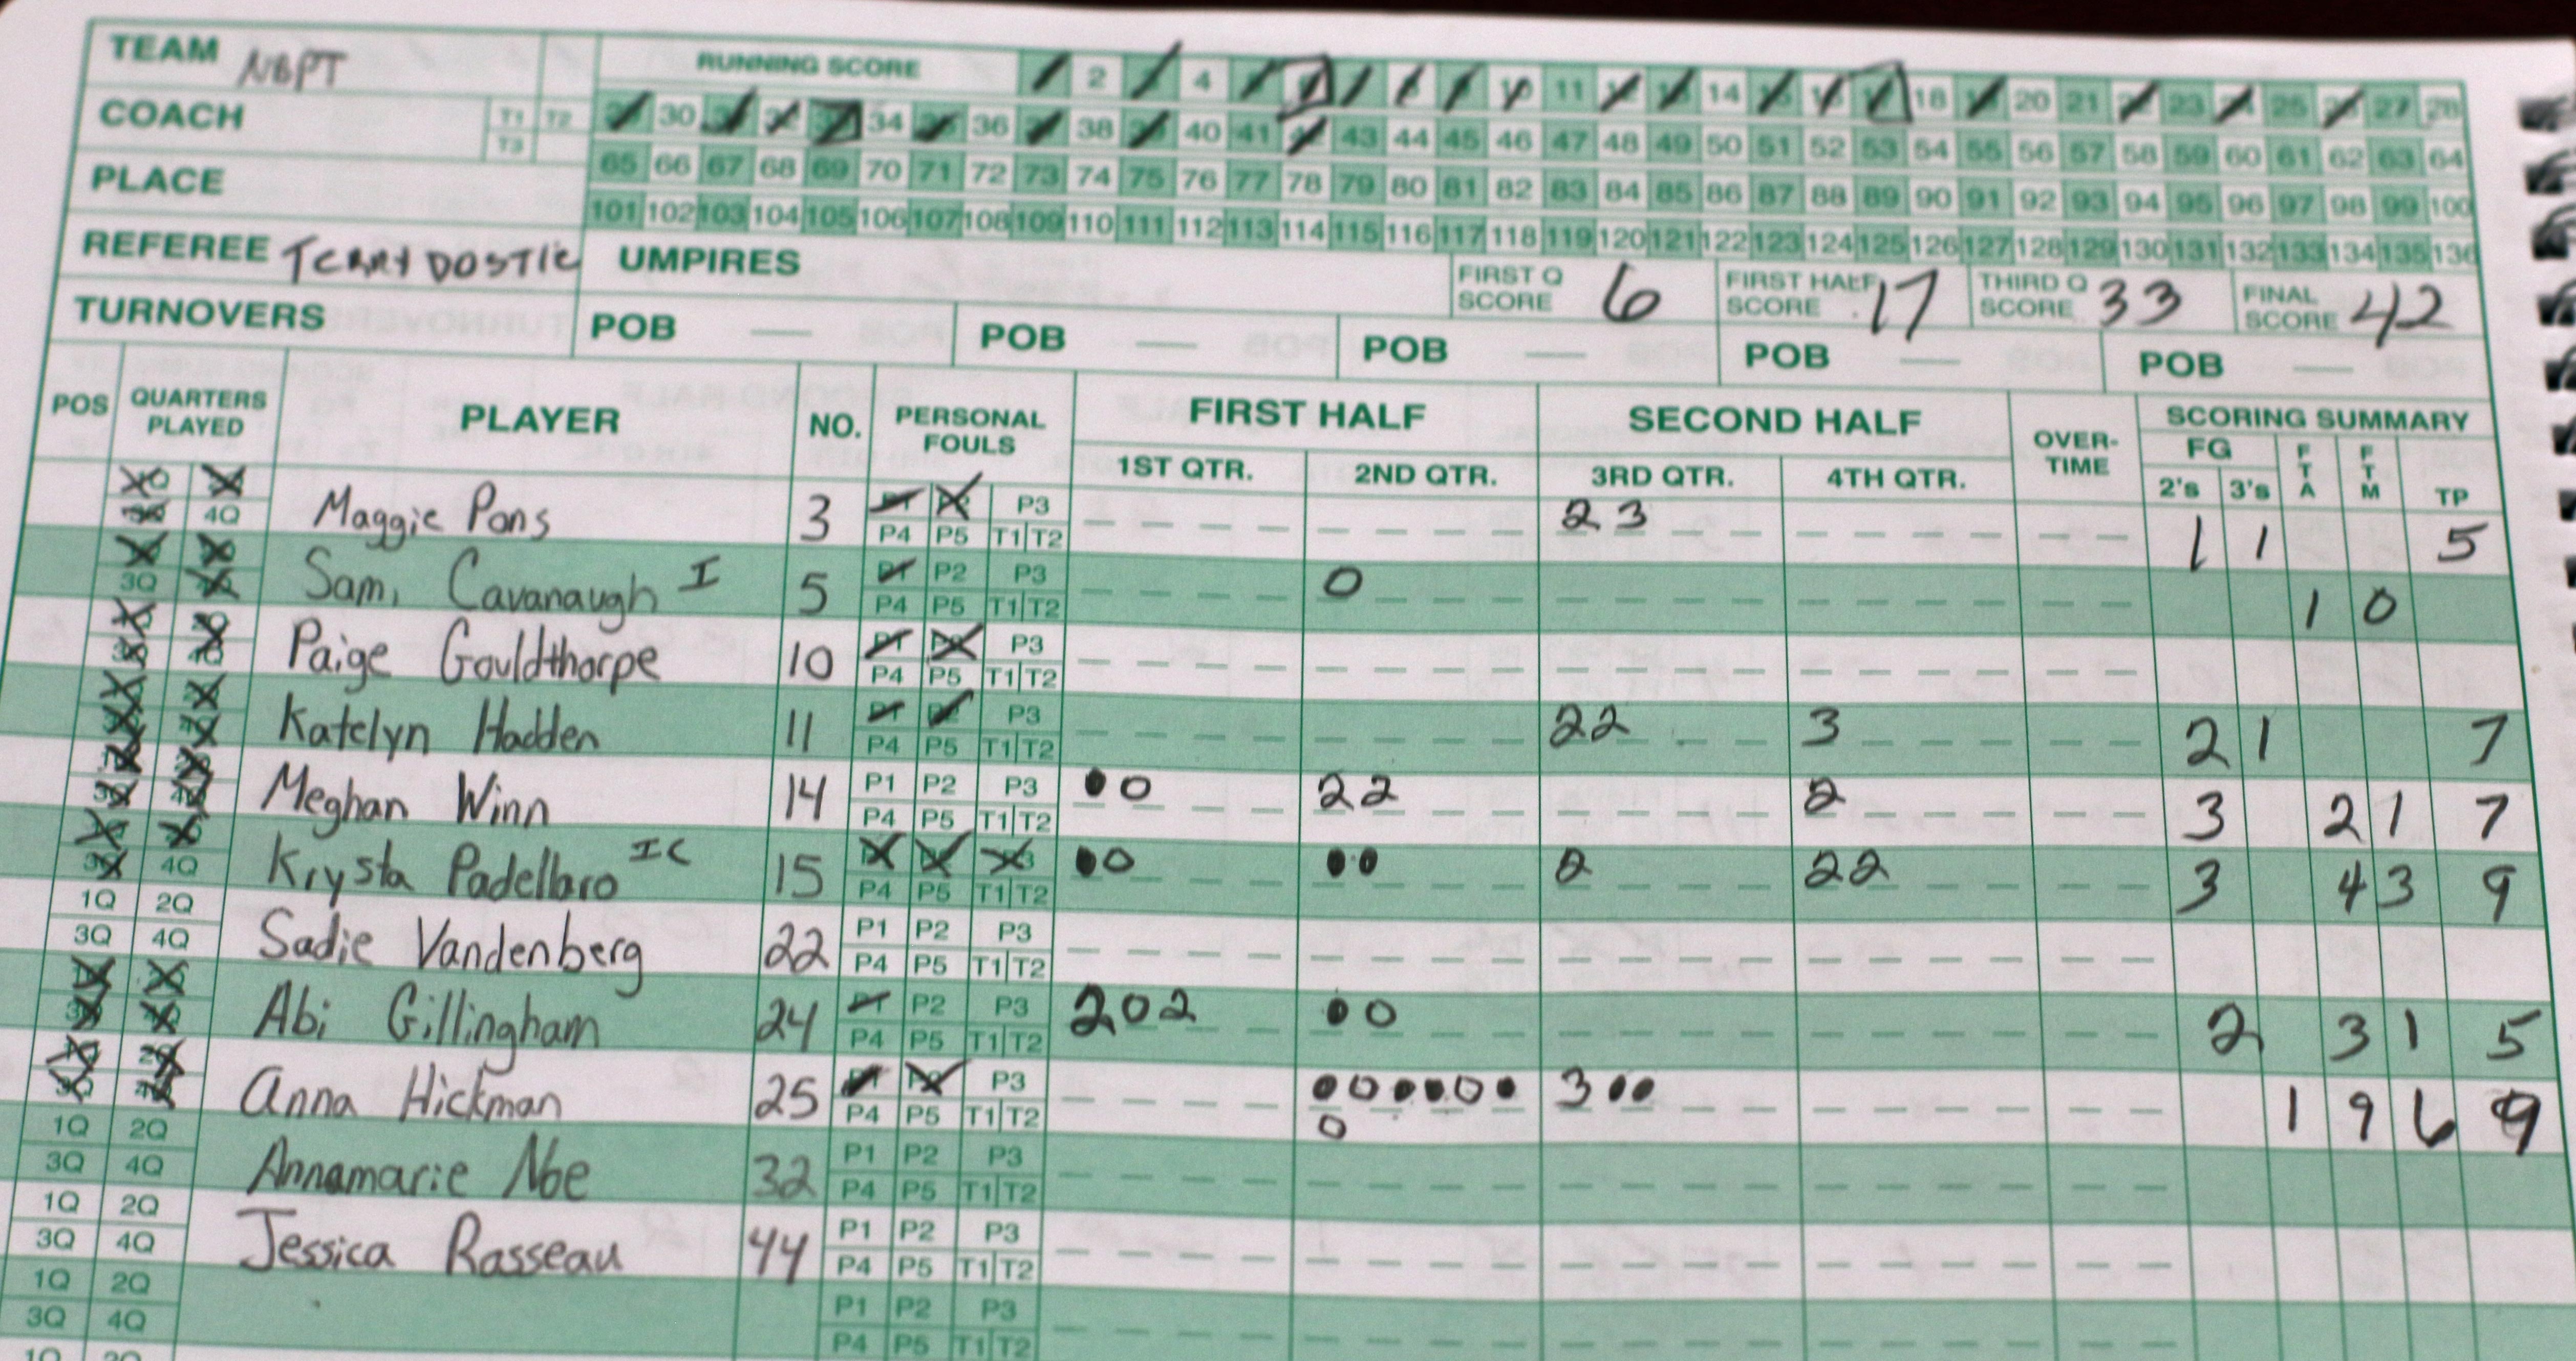 TEAM NBPT
RUNNING SCORE 2 4 11 14 18 20 21 23 25 27 28
COACH T1 T2 T3
30 34 36 38 40 41 43 44 45 46 47 48 49 50 51 52 53 54 55 56 57 58 59 60 61 62 63 64
PLACE
65 66 67 68 69 70 71 72 73 74 75 76 77 78 79 80 81 82 83 84 85 86 87 88 89 90 91 92 93 94 95 96 97 98 99 100
101 102 103 104 105 106 107 108 109 110 111 112 113 114 115 116 117 118 119 120 121 122 123 124 125 126 127 128 129 130 131 132 133 134 135 136
REFEREE Terry DOSTIE UMPIRES
FIRST Q SCORE 6 FIRST HALF SCORE 17 THIRD Q SCORE 33 FINAL SCORE 42
TURNOVERS POB — POB — POB — POB — POB —
POS QUARTERS PLAYED PLAYER NO. PERSONAL FOULS FIRST HALF SECOND HALF OVER-TIME SCORING SUMMARY
1ST QTR. 2ND QTR. 3RD QTR. 4TH QTR. FG 2's 3's FTA FTM TP
4Q Maggie Pons 3 P3 2 3 1 1 5
P4 P5 T1 T2
3Q Sam. Cavanaugh I 5 P1 P2 P3 0 1 0
P4 P5 T1 T2
Paige Gouldthorpe 10 P1 P3
P4 P5 T1 T2
Katelyn Hadden 11 P1 P2 P3 2 2 3 2 1 7
P4 P5 T1 T2
Meghan Winn 14 P1 P2 P3 ● 0 2 2 2 3 2 1 7
P4 P5 T1 T2
4Q Krysta Padellaro IC 15 P3 ● 0 ● ● 2 2 2 3 4 3 9
P4 P5 T1 T2
1Q 2Q
3Q 4Q Sadie Vandenberg 22 P1 P2 P3
P4 P5 T1 T2
Abi Gillingham 24 P1 P2 P3 2 0 2 ● 0 2 3 1 5
P4 P5 T1 T2
Anna Hickman 25 P1 P2 P3 ● 0 ● ● 0 ● 3 ● ● 1 9 6 9
P4 P5 T1 T2 0
1Q 2Q
3Q 4Q Annamarie Noe 32 P1 P2 P3
P4 P5 T1 T2
1Q 2Q
3Q 4Q Jessica Rasseau 44 P1 P2 P3
P4 P5 T1 T2
1Q 2Q P1 P2 P3
3Q 4Q P4 P5 T1 T2
1Q 2Q